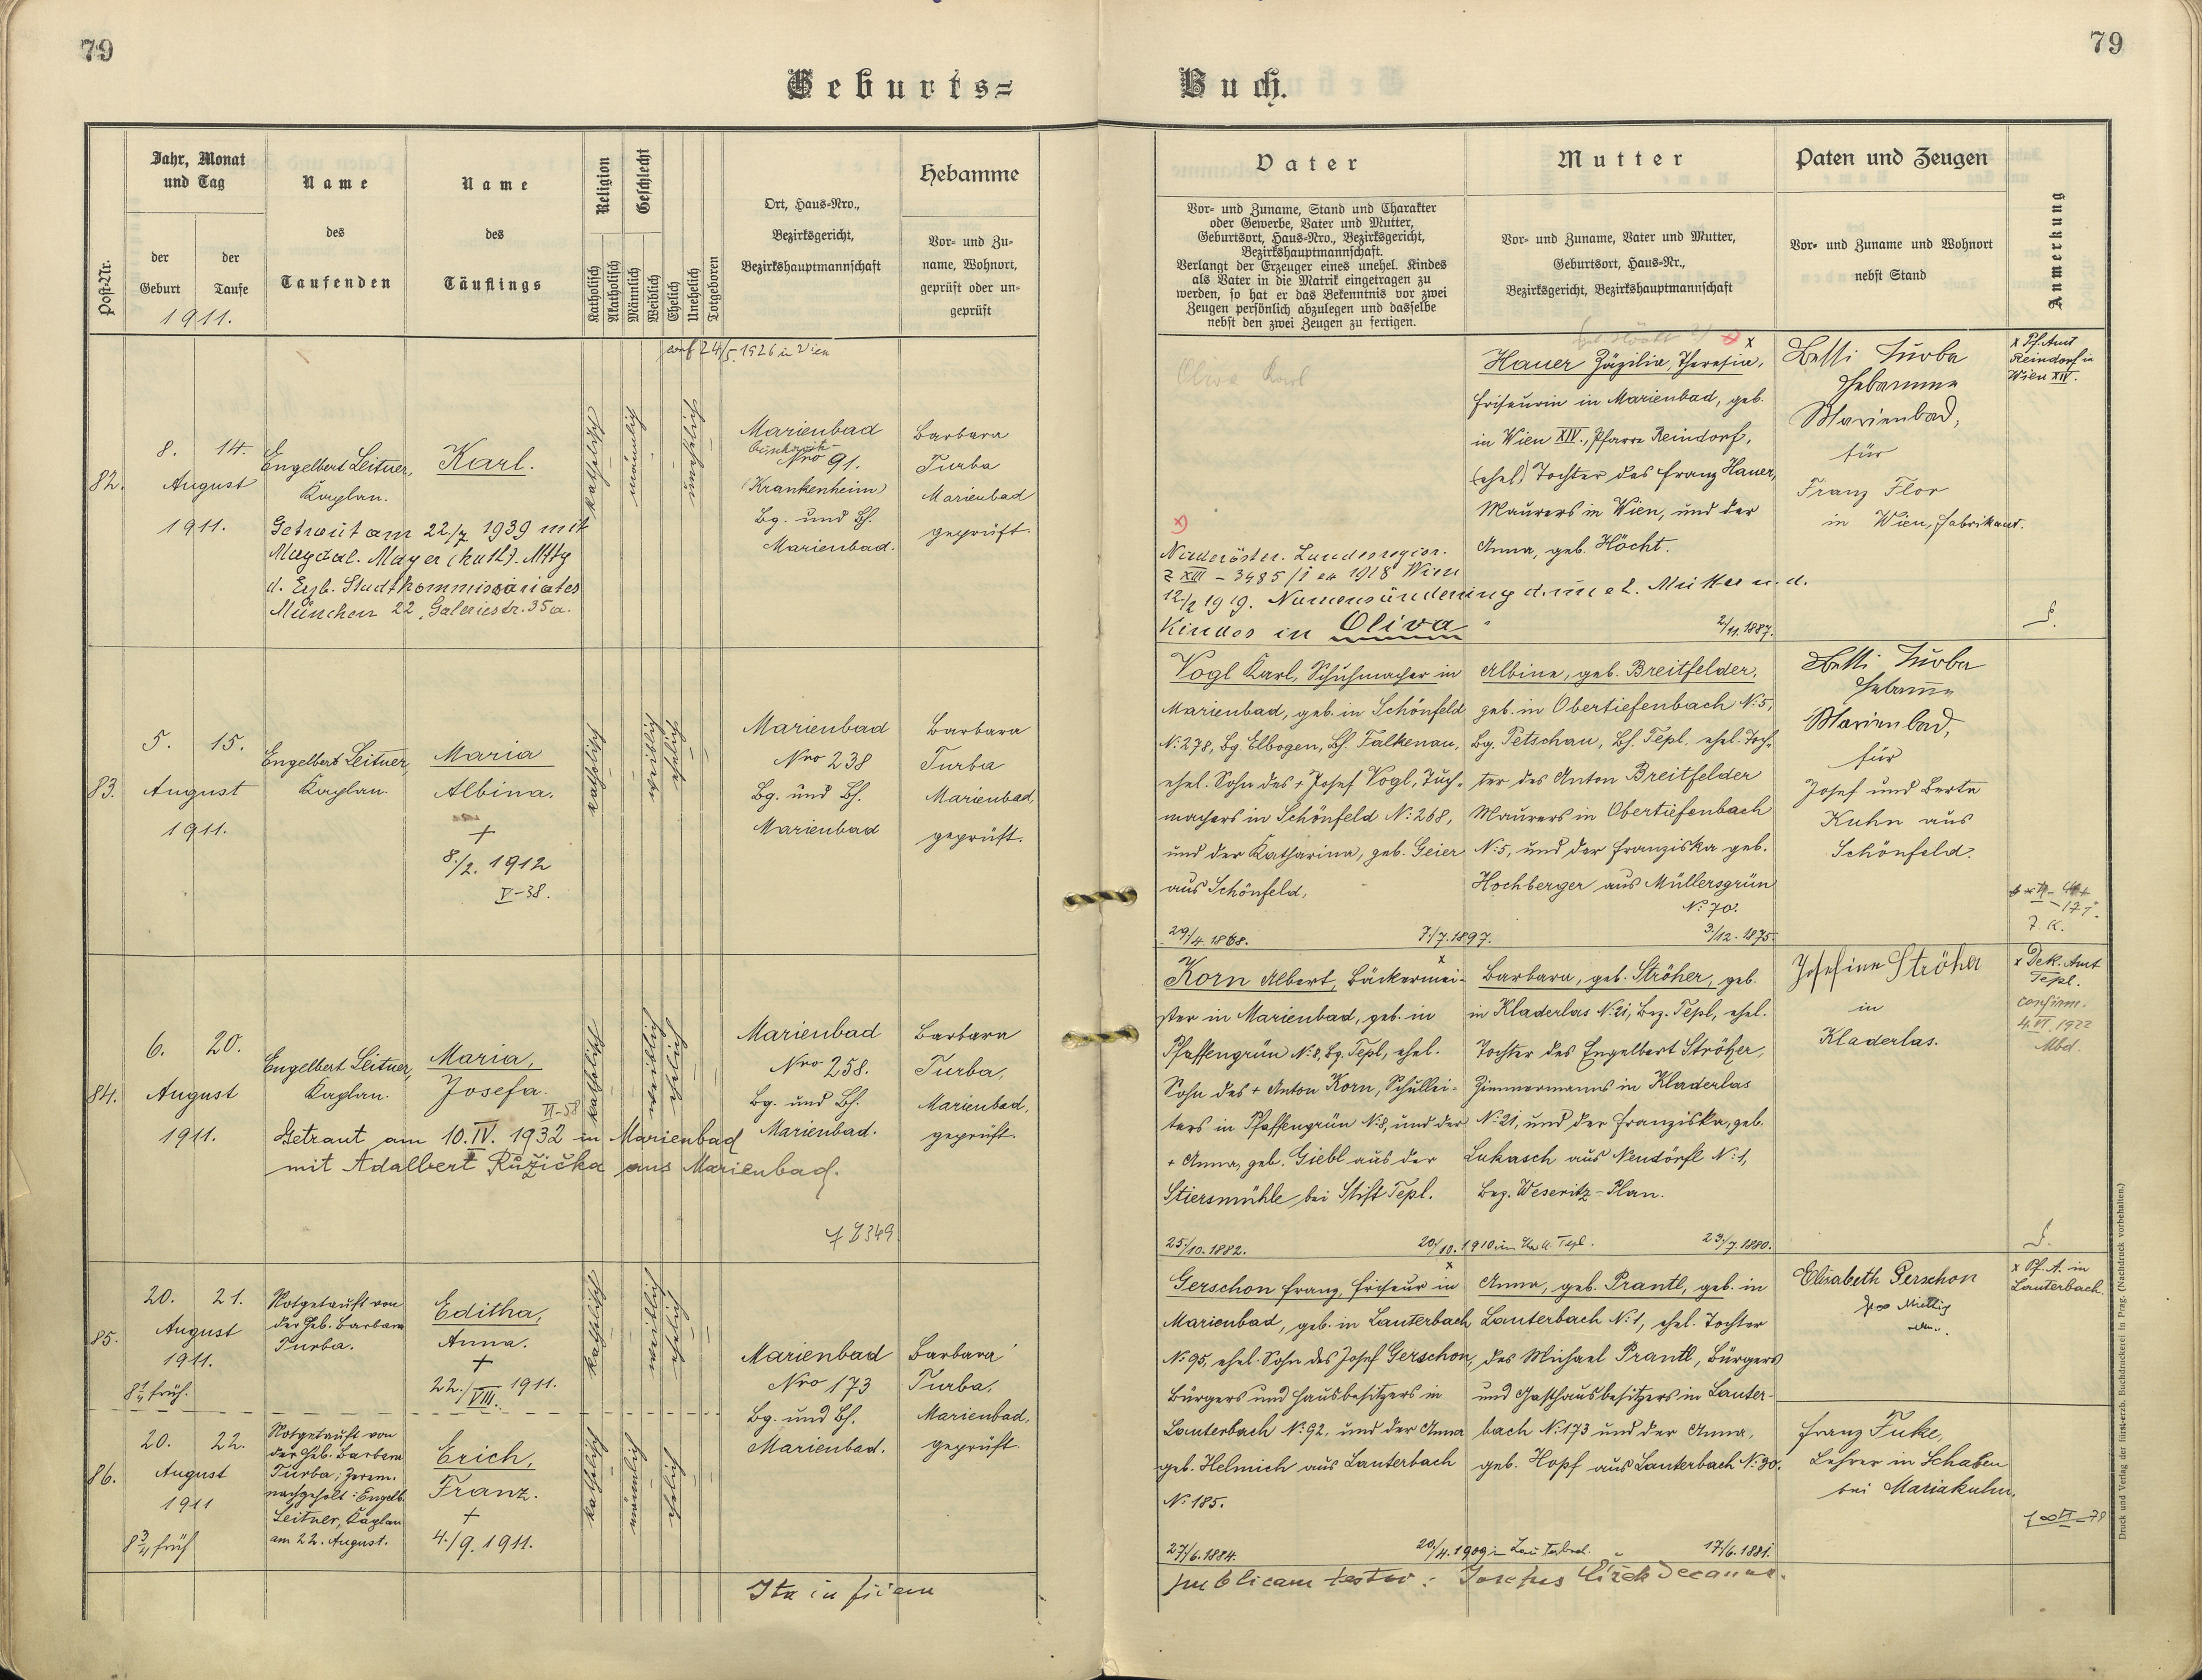 79
79
Geburts=
Buch.
Post-Nr.
Jahr, Monat
und Tag
der
Geburt
der
Taufe
1911.
Name
des
Taufenden
Name
des
Täuflings
Religion
Katholisch
Akatholisch
Geschlecht
Männlich
Weiblich
Ehelich
Unehelich
Totgeboren
Ort, Haus-Nro.,
Bezirksgericht,
Bezirkshauptmannschaft
Hebamme
Vor- und Zu-
name, Wohnort,
geprüft oder un-
geprüft
Vater
Vor- und Zuname, Stand und Charakter
oder Gewerbe, Vater und Mutter,
Geburtsort, Haus-Nro., Bezirksgericht,
Bezirkshauptmannschaft.
Verlangt der Erzeuger eines unehel. Kindes
als Vater in die Matrik eingetragen zu
werden, so hat er das Bekenntnis vor zwei
Zeugen persönlich abzulegen und dasselbe
nebst den zwei Zeugen zu fertigen.
Mutter
Vor- und Zuname, Vater und Mutter,
Geburtsort, Haus-Nr.,
Bezirksgericht, Bezirkshauptmannschaft
Paten und Zeugen
Vor- und Zuname und Wohnort
nebst Stand
Anmerkung
conf 24/5. 1926 in Wien
82.
8. 14.
August
1911.
Engelbert Leitner,
Kaplan.
Karl.
katholisch
männlich
unehelich
Getraut am 22./7. 1939 mit
Magdal. Mayer (kath).
d. Erzb. Stadtkommissariates
München 22, Galeriestr. 35a.
Marienbad
Nro 91.
(Krankenheim)
Bg. und Bh.
Marienbad.
Barbara
Turba
Marienbad
geprüft.
Oliva Karl
x)
Niederöster. Landesregier.
Z XIII - 3485/1 ex 1918 Wien
12./2 1919. Namensänderung d. unehel. Mutter u. d.
Kindes in Oliva
Hauer Zäzilia, Theresia,
Friseurin in Marienbad, geb.
in Wien XIV., Pfarre Reindorf,
(ehel.) Tochter des Franz Hauer,
Maurers in Wien, und der
Anna, geb. Höcht.
2/11. 1887.
Betti Turba
Hebamme
Marienbad,
für
Franz Flor
in Wien, Fabrikant.
x Pf. Amt
Reindorf in
Wien XIV.
83.
5. 15.
August
1911.
Engelbert Leitner,
Kaplan.
Maria
Albina.
+
8./2. 1912
V-38.
katholisch
weiblich
ehelich
Marienbad
Nro 238
Bg. und Bh.
Marienbad
Barbara
Turba
Marienbad,
geprüft.
Vogl Karl, Schuhmacher in
Marienbad, geb. in Schönfeld
N: 278, Bg. Elbogen, Bh. Falkenau,
ehel. Sohn des + Josef Vogl, Tuch-
machers in Schönfeld N: 268,
und der Katharina, geb. Geier
aus Schönfeld,
29/4. 1868.
7./7. 1897.
Albine, geb. Breitfelder,
geb. in Obertiefenbach N: 5,
Bg. Petschau, Bh. Tepl, ehel. Toch-
ter des Anton Breitfelder
Maurers in Obertiefenbach
N: 5, und der Franziska geb.
Hochberger aus Müllersgrün
N: 70.
3./12. 1875.
Betti Turba
Hebamme
Marienbad,
für
Josef und Berta
Kuhn aus
Schönfeld.
84.
6. 20.
August
1911.
Engelbert Leitner,
Kaplan.
Maria,
Josefa.
VI-58
katholisch
weiblich
ehelich
Getraut am 10. IV. 1932 in Marienbad
mit Adalbert Růžička aus Marienbad.
Marienbad
Nro 258.
Bg. und Bh.
Marienbad.
Barbara
Turba,
Marienbad,
geprüft.
Korn Albert, Bäckermei-
ster in Marienbad, geb. in
Pfaffengrün N: 8, Bg. Tepl, ehel.
Sohn des + Anton Korn, Schullei-
ters in Pfaffengrün N: 8, und der
+ Anna, geb. Giebl aus der
Stiersmühle bei Stift Tepl.
25./10. 1882.
20./10. 1910 in Tepl.
Barbara, geb. Ströher, geb.
in Kladerlas N: 21, Bez. Tepl, ehel.
Tochter des Engelbert Ströher,
Zimmermanns in Kladerlas
N: 21, und der Franziska, geb.
Lukasch aus Neudörfl N: 1,
Bez. Weseritz-Plan.
23./7. 1880.
Josefine Ströher
in
Kladerlas.
x Dek. Amt
Tepl.
confirm.
4. VI. 1922
Mbd.
85.
20. 21.
August
1911.
8 1/4 früh.
Notgetauft von
der Heb. Barbara
Turba.
Editha,
Anna.
+
22./VIII. 1911.
katholisch
weiblich
ehelich
Marienbad
Nro 173
Bg. und Bh.
Marienbad.
Barbara
Turba,
Marienbad,
geprüft.
Gerschon Franz, Friseur in
Marienbad, geb. in Lauterbach
N: 95, ehel. Sohn des Josef Gerschon,
Bürgers und Hausbesitzers in
Lauterbach N: 92, und der Anna
geb. Helmich aus Lauterbach
N: 185.
27./6. 1884.
20./4. 1909 in Lauterbach.
Anna, geb. Prantl, geb. in
Lauterbach N: 1, ehel. Tochter
des Michael Prantl, Bürgers
und Gasthausbesitzers in Lauter-
bach N: 173 und der Anna,
geb. Hopf aus Lauterbach N: 30.
17./6. 1881.
Elisabeth Gerschon
x Pf. A. in
Lauterbach.
86.
20. 22.
August
1911
8 3/4 früh
Notgetauft von
der Heb. Barbara
Turba; Zerem.
nachgeholt: Engelb.
Leitner, Kaplan
am 22. August.
Erich,
Franz.
+
4./9. 1911.
katholisch
männlich
ehelich
Franz Fuke,
Lehrer in Schaben
bei Mariakulm.
Ita in fidem
publicam testor: Josephus Čížek Decanus.
Druck und Verlag der fürsterzb. Buchdruckerei in Prag. (Nachdruck vorbehalten.)